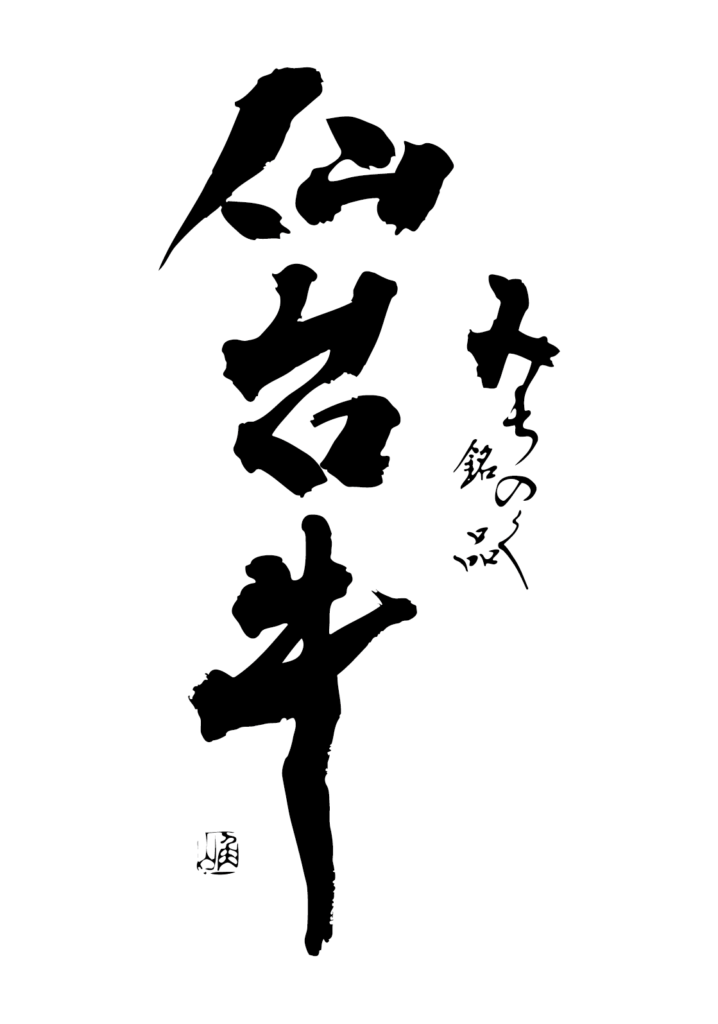 みちのく
銘品
仙台牛